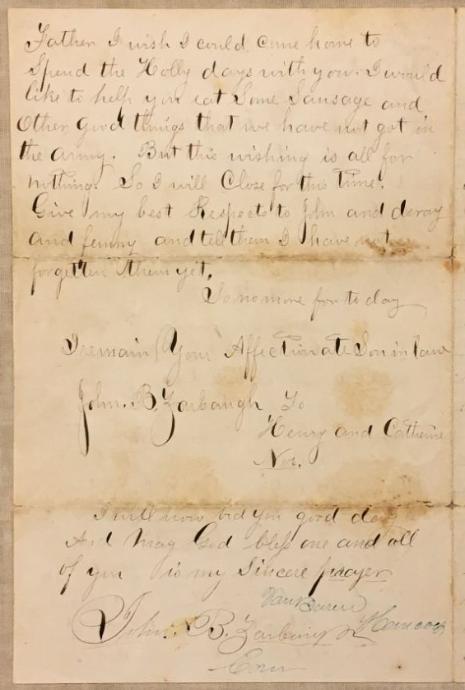 Father I wish I could come home to
Spend the Holly days with you. I would
like to help you eat Some Sausage and
Other good things that we have not got in
the army. But this wishing is all for
nothing. So I will Close for this time.
Give my best Respects to John and
and fenny and tell them I have not
forgetten them yet,
So no more for to day
I remain Your Affectionate Son in law
John. B. Zarbaugh To
Henry and Catherine
I will now bid you good day
And may God bless one and all
of you is my Sincere prayer
Van Buren
John. B. Zarbaugh Hancock